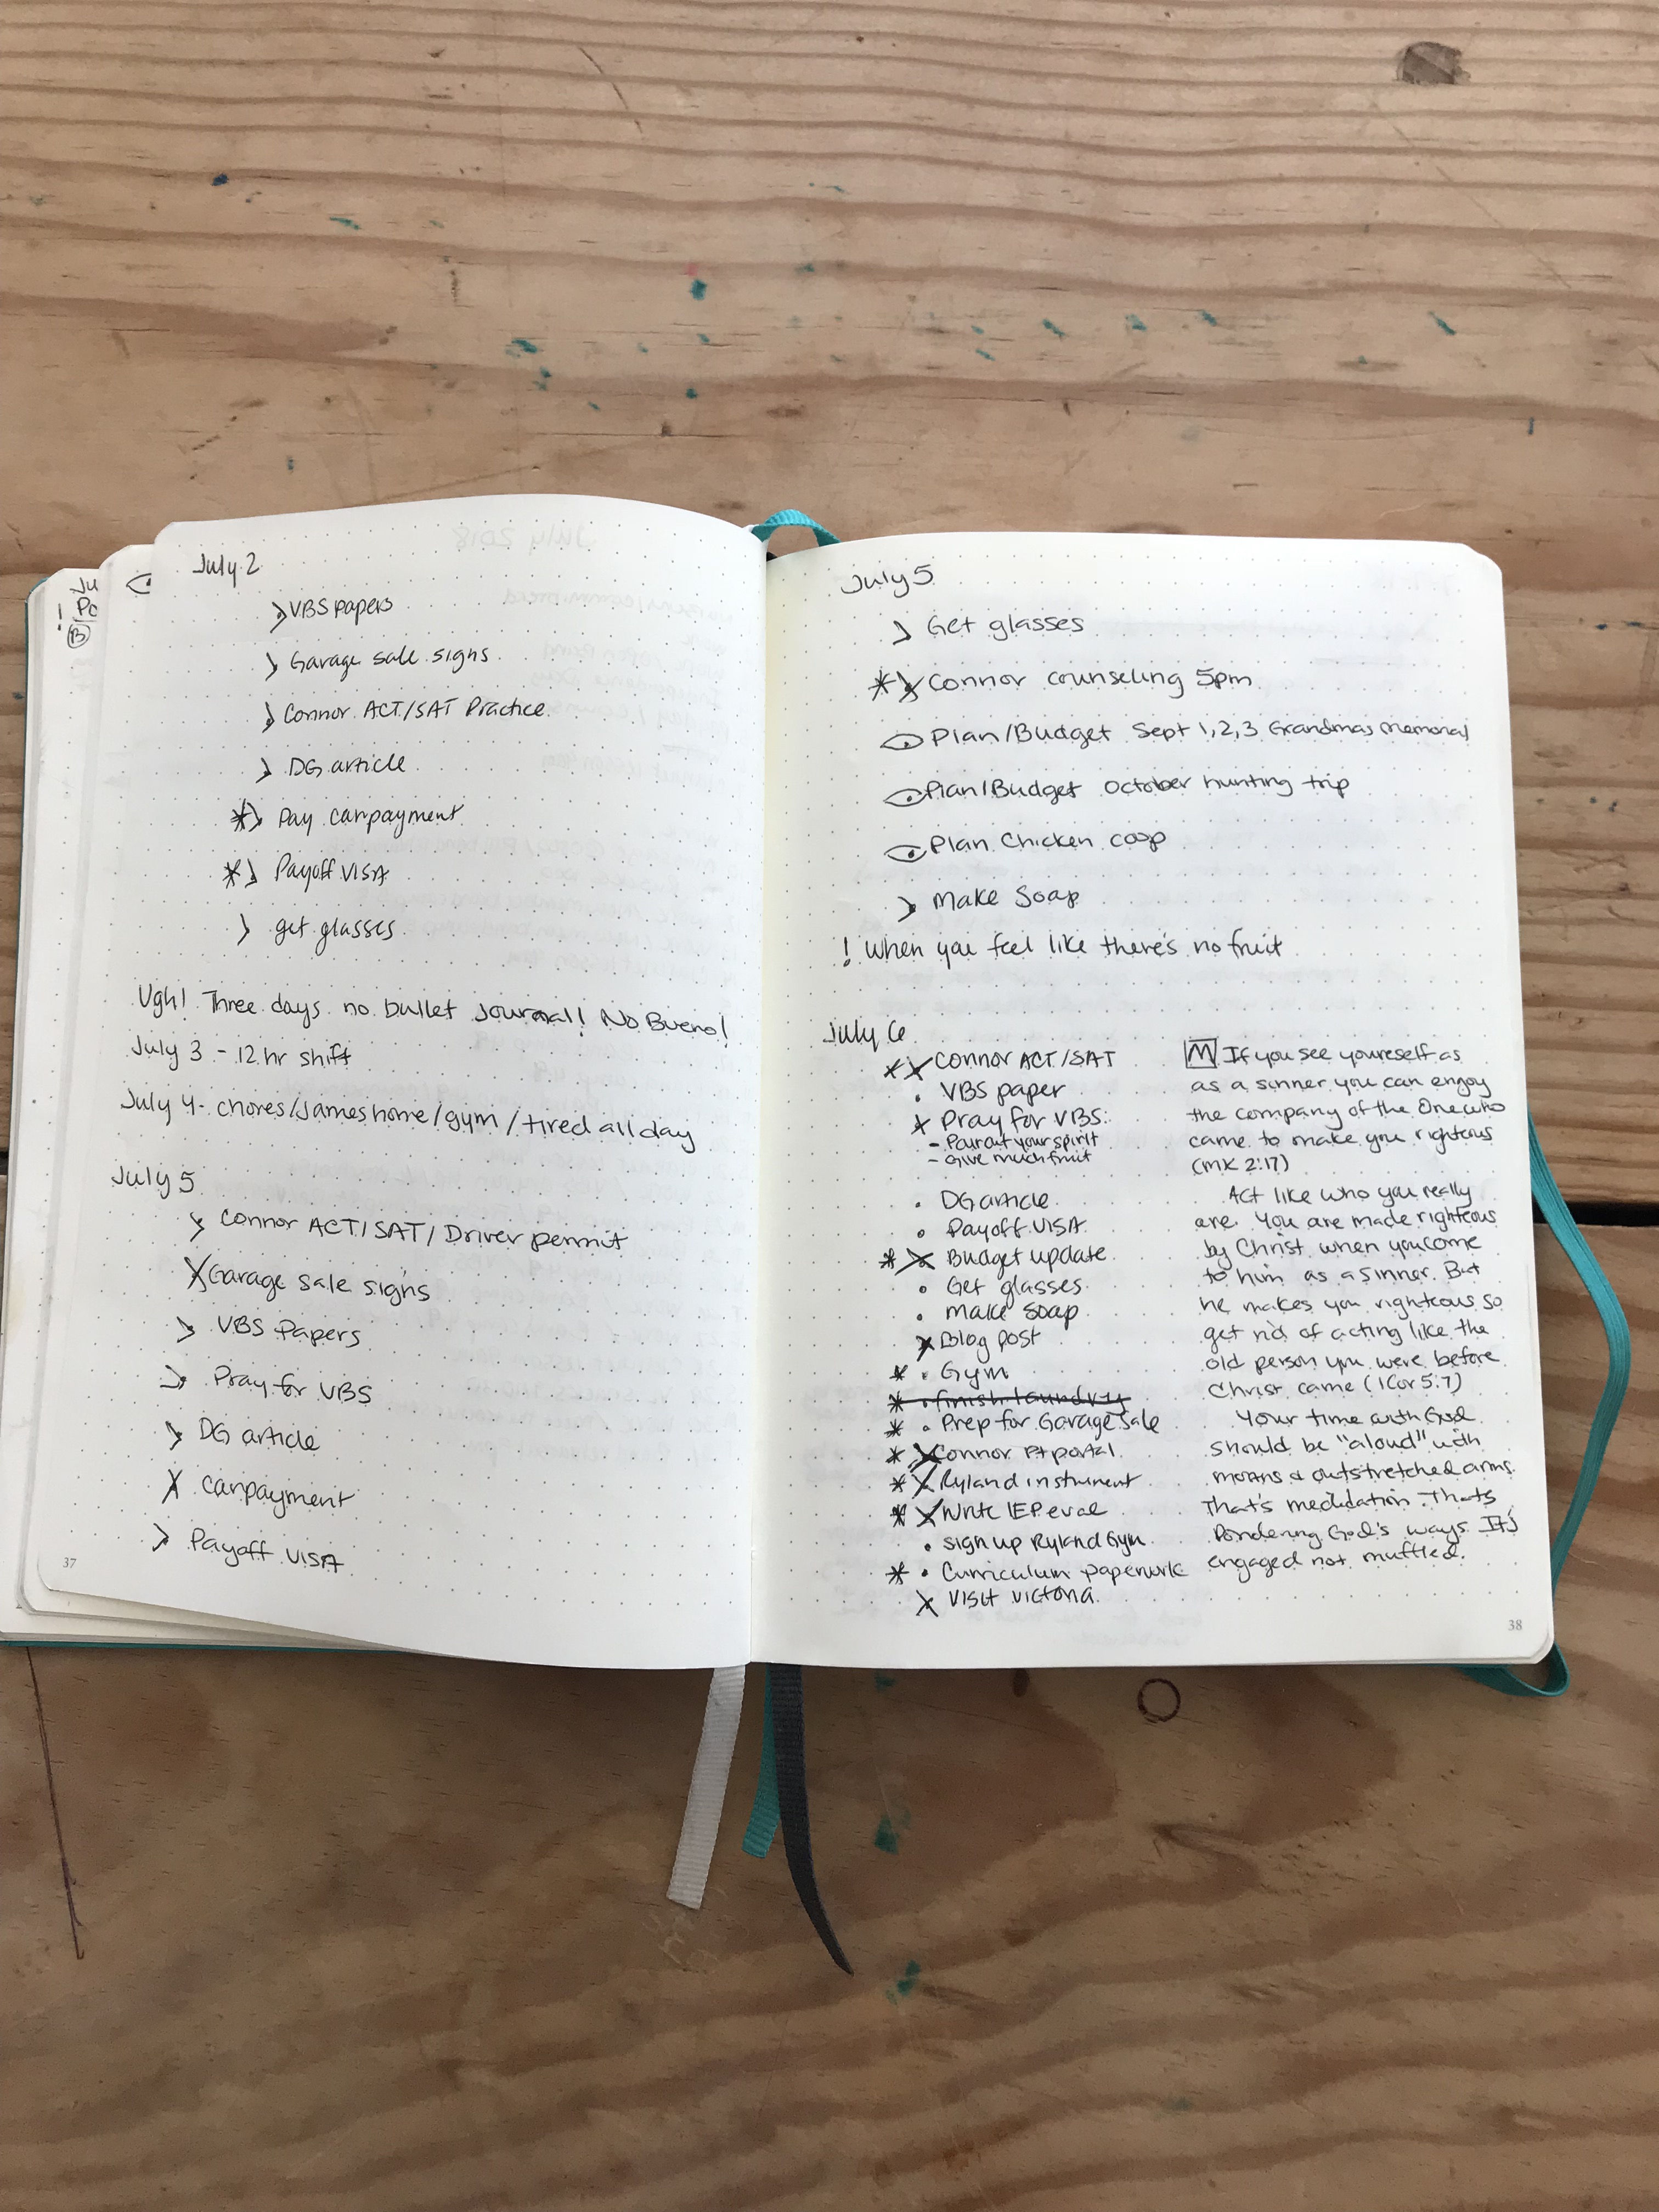 Ju
! Po
B
July 2
> VBS papers
> Garage sale signs
> Connor ACT/SAT Practice
> DG article
*> Pay carpayment
*> Payoff VISA
> get glasses
Ugh! Three days no bullet journal! No Bueno!
July 3 - 12 hr shift
July 4 - chores/James home/gym/tired all day
July 5
> Connor ACT/SAT/Driver permit
X Garage sale signs
> VBS Papers
> Pray for VBS
> DG article
X Carpayment
> Payoff VISA
37
July 5
> Get glasses
*X Connor counseling 5pm
Plan/Budget Sept 1,2,3 Grandmas memorial
Plan/Budget October hunting trip
Plan Chicken coop
> Make Soap
! When you feel like there's no fruit
July 6
*X Connor ACT/SAT
• VBS paper
X Pray for VBS:
- Pour out your spirit
- Give much fruit
• DG article
• Payoff VISA
* X Budget update
• Get glasses
• make soap
X Blog post
* • Gym
* • finish laundry
* • Prep for Garage Sale
* X Connor Pt portal
* X Ryland instrument
* X Write IEP eval
• sign up Ryland Gym
* • Curriculum paperwork
X Visit Victoria
M If you see youreself as
as a sinner you can enjoy
the company of the One who
came to make you righteous
(MK 2:17)
Act like who you really
are. You are made righteous
by Christ when you come
to him as a sinner. But
he makes you righteous so
get rid of acting like the
old person you were before
Christ came (1 Cor 5:7)
Your time with God
should be "aloud" with
moans & outstretched arms.
That's meditation. Thats
Pondering God's ways. It's
engaged not muffled.
38
July 2018